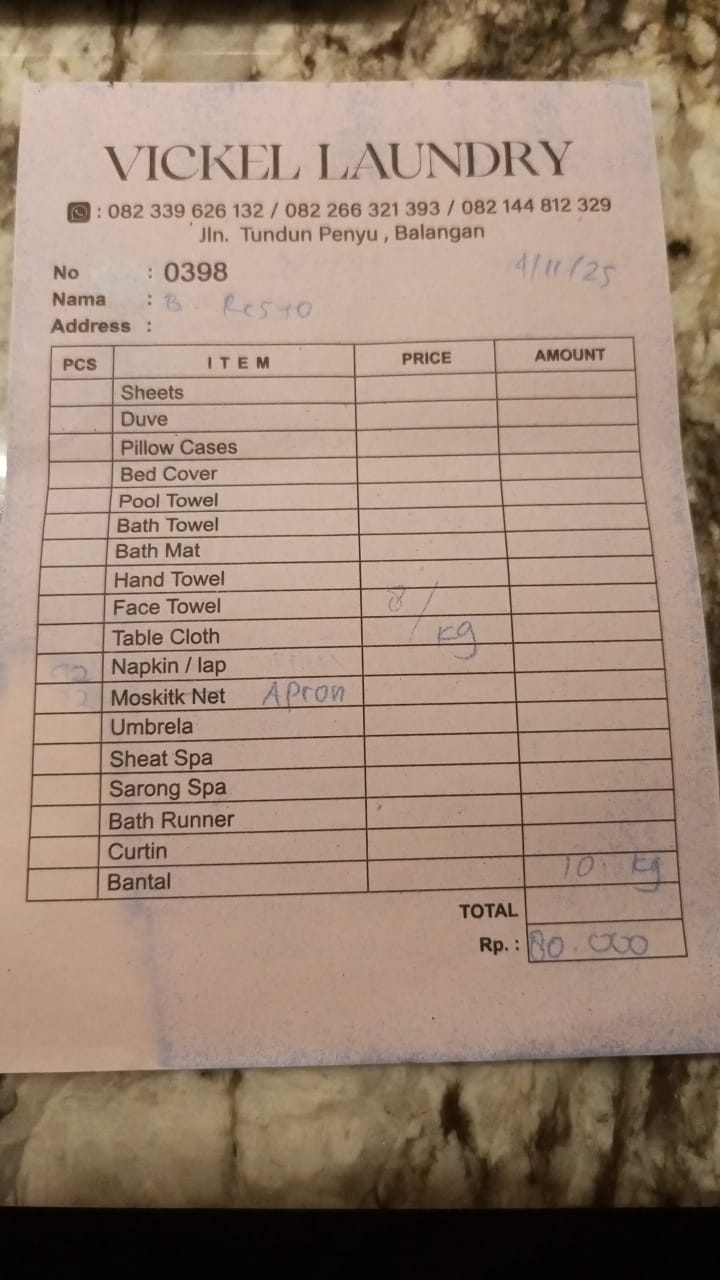 VICKEL LAUNDRY
: 082 339 626 132 / 082 266 321 393 / 082 144 812 329
Jln. Tundun Penyu , Balangan
No : 0398 4/11/25
Nama : B. Resto
Address :
PCS ITEM PRICE AMOUNT
Sheets
Duve
Pillow Cases
Bed Cover
Pool Towel
Bath Towel
Bath Mat
Hand Towel
Face Towel 8/
Table Cloth kg
Napkin / lap
Moskitk Net Apron
Umbrela
Sheat Spa
Sarong Spa
Bath Runner
Curtin
Bantal 10 kg
TOTAL
Rp. : 80.000